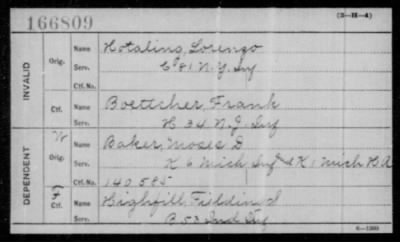 166809
(3-H-4)
INVALID
Orig. Name Hotaling, Lorenzo
Serv. C 81 N.Y. Inf
Ctf. No.
Ctf. Name Boettcher, Frank
Serv. H 34 N.J. Inf
DEPENDENT
W Orig. Name Baker, Moses D
Serv. K 6 Mich Inf & K 1 Mich H A
Ctf. No. 140585
Ctf. Name Highfill, Fielding S
Serv. B 53 Ind Inf